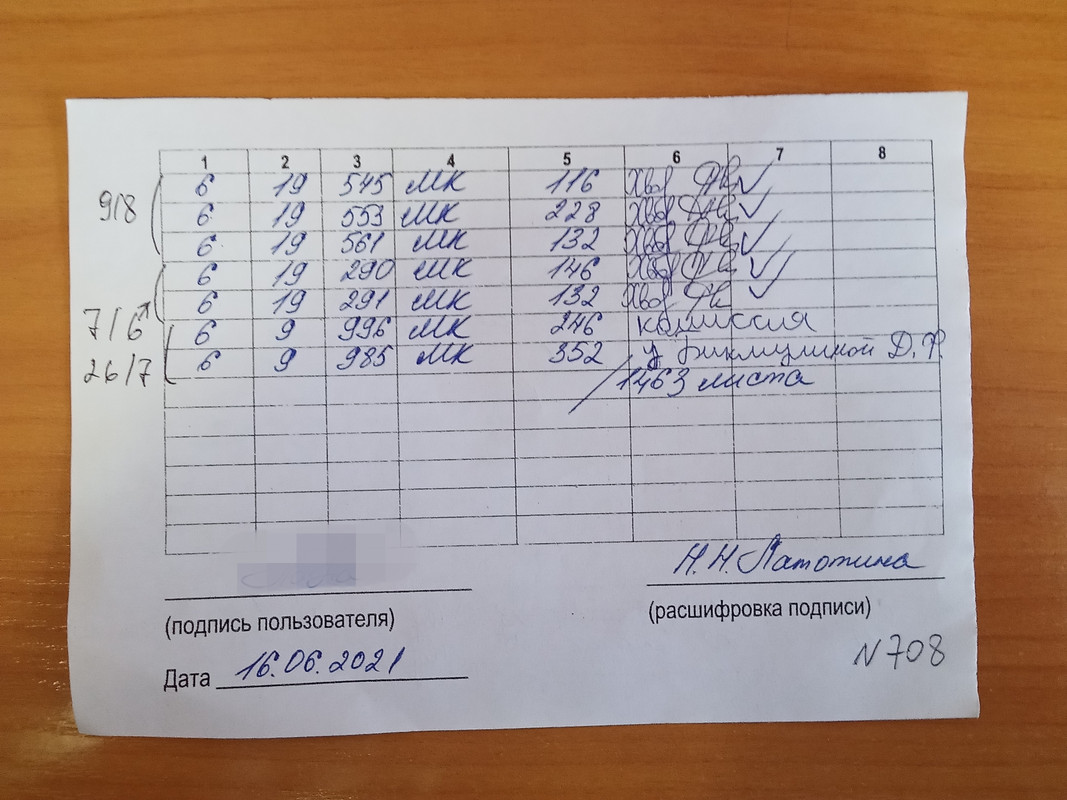 1 2 3 4 5 6 7 8
6 19 545 МК 116
9/8 6 19 553 МК 228
6 19 561 МК 132
6 19 290 МК 146
6 19 291 МК 132
7/6 6 9 996 МК 246 комиссия
26/7 6 9 985 МК 352 у Бикмулиной Д.Р.
1463 листа
Н.Н. Латотина
(подпись пользователя) (расшифровка подписи)
N 708
Дата 16.06.2021